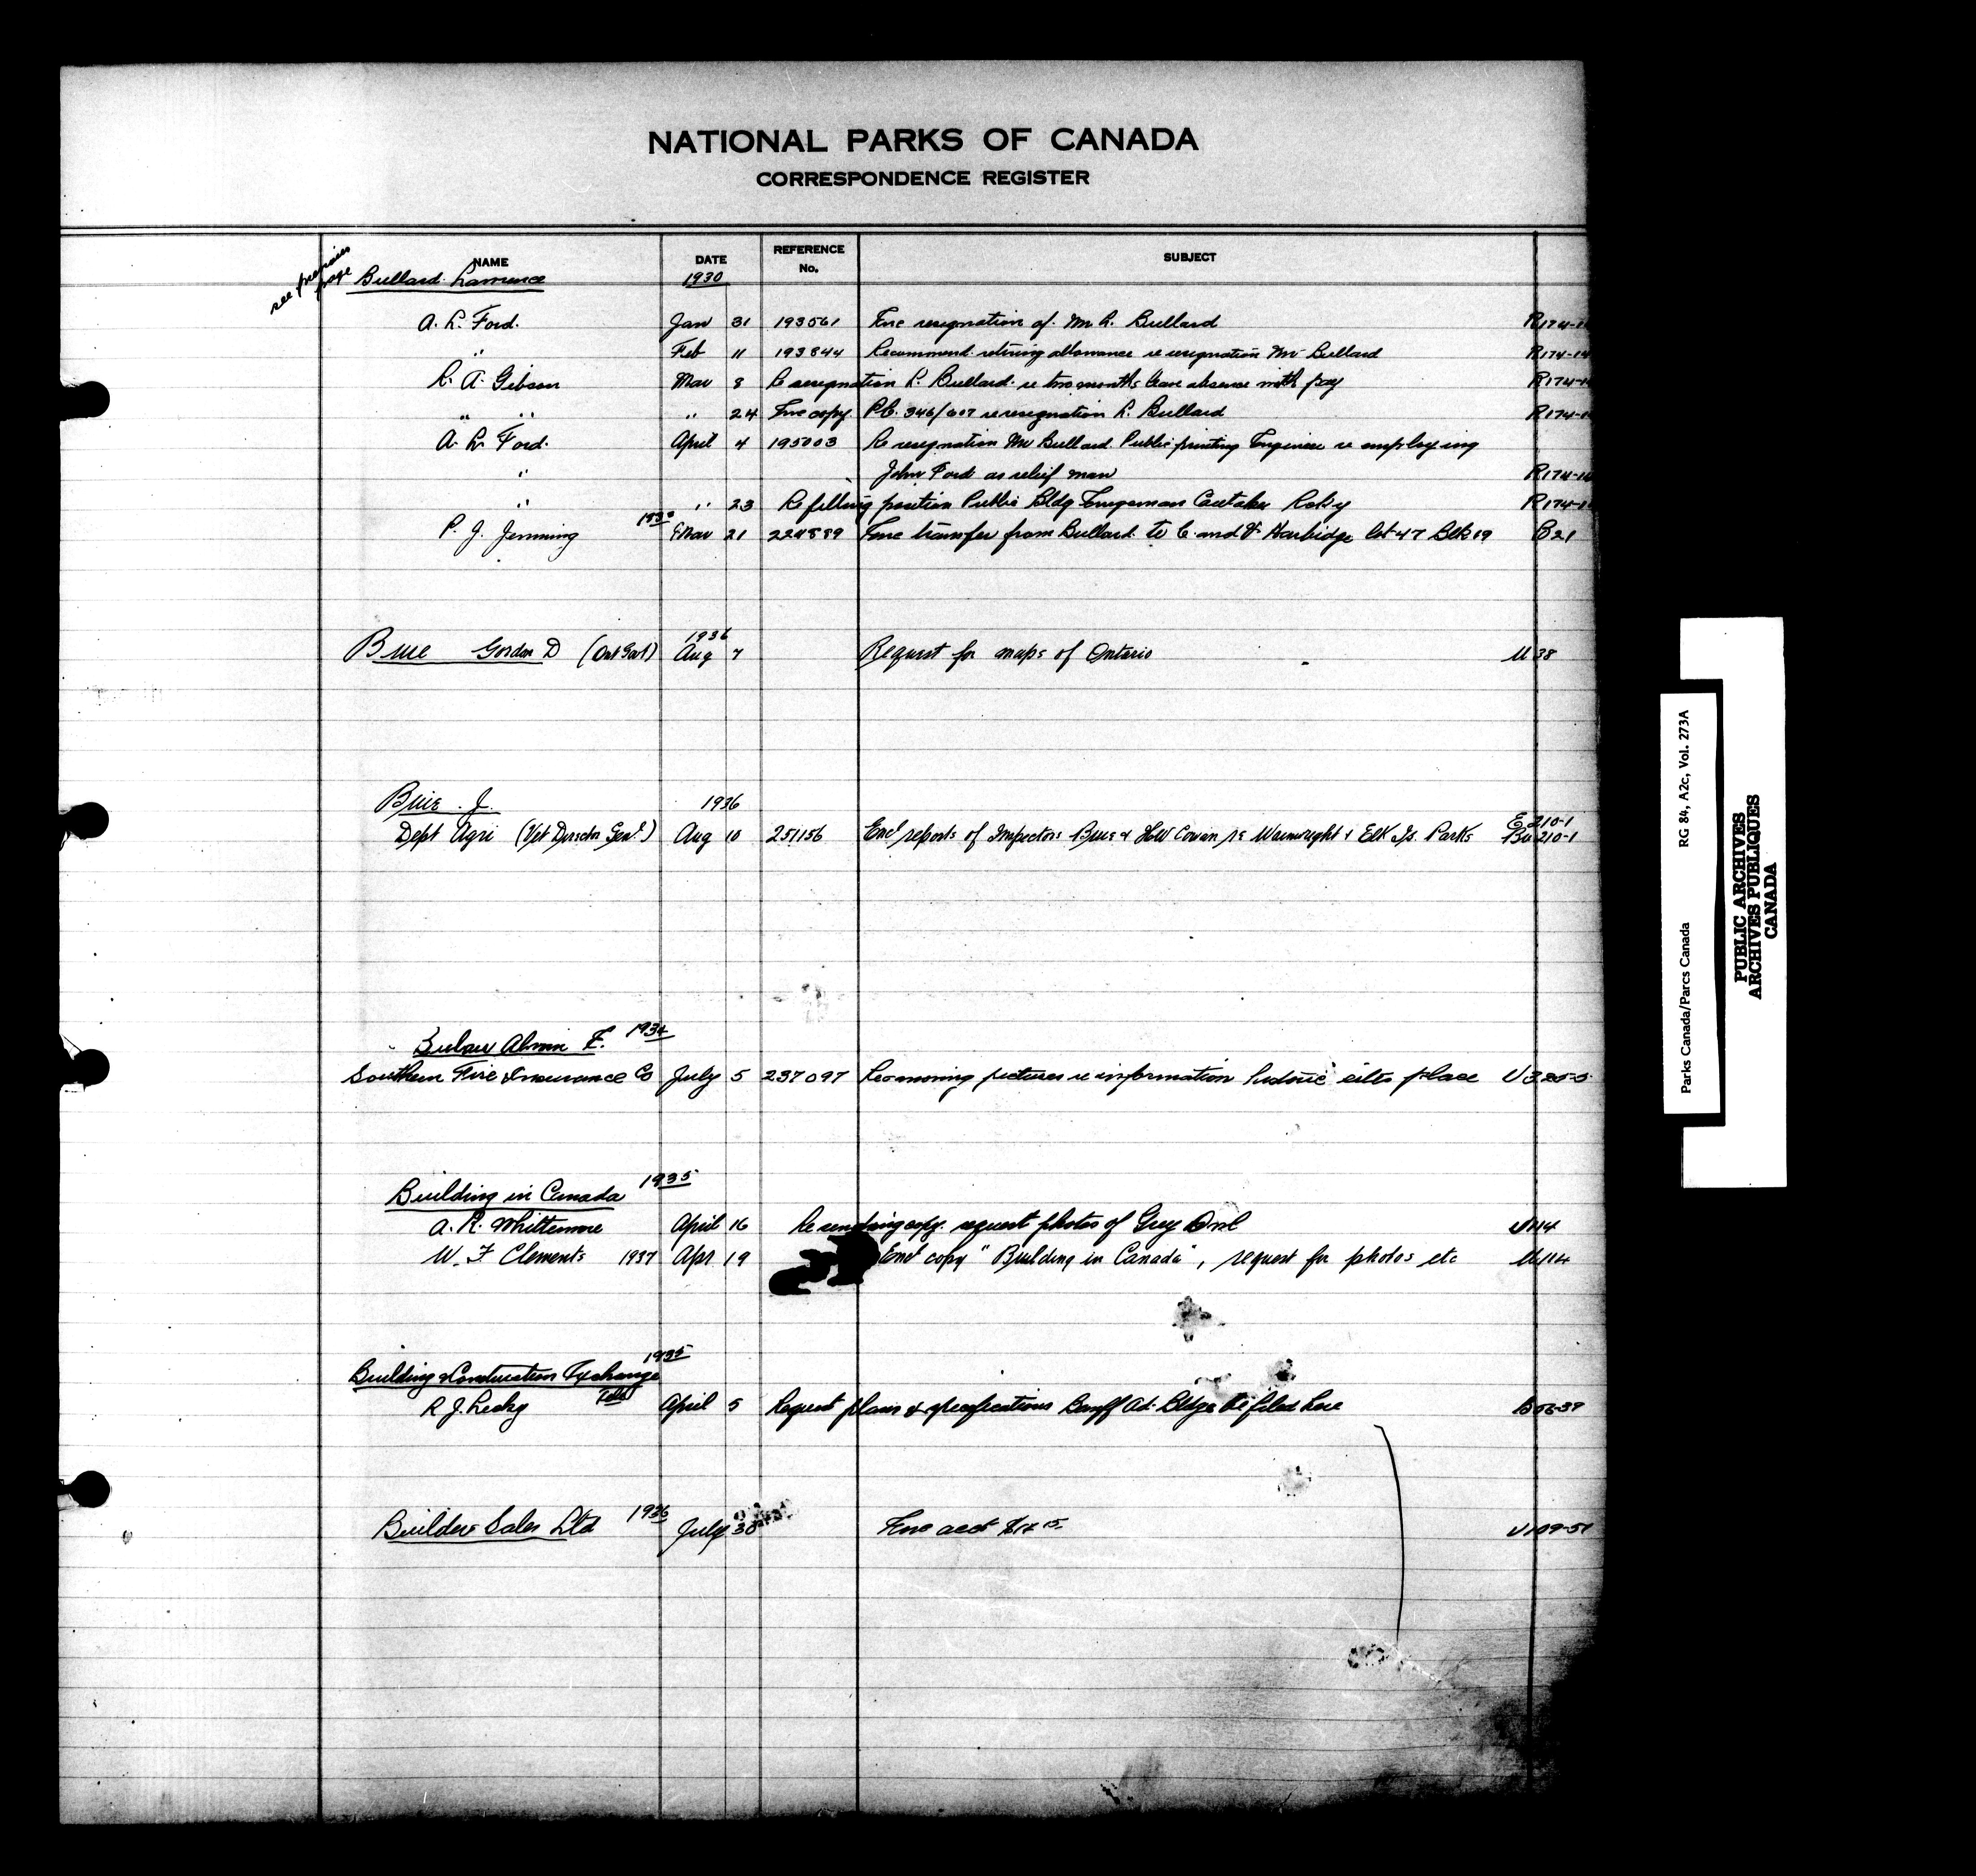 NATIONAL PARKS OF CANADA
CORRESPONDENCE REGISTER
NAME DATE REFERENCE No. SUBJECT
see previous page
Bullard Lawrence 1930
A. L. Ford. Jan 31 193561 Enc resignation of Mr L. Bullard R174-1
" Feb 11 193844 Recommend retiring allowance re resignation Mr Bullard R174-14
R. A. Gibson Mar 8 Re resignation L. Bullard re two months leave absence with pay R174-1
" " " 24 Enc copy P.C. 346/607 re resignation L. Bullard R174-1
A. L. Ford. April 4 195003 Re resignation Mr Bullard Public printing Engineer re employing
" John Ford as relief man R174-14
" " 23 Re filling position Public Bldg Caretaker R174-1
P. J. Jenning Mar 21 224889 Enc transfer from Bullard to C. and V. Harbidge lot 47 Blk 19 B21
1936
Gordon D Aug 7 Request for maps of Ontario U 38
J. 1936
E 210-1
Dept Agri (Vet Director Genl.) Aug 10 251156 Encl reports of Inspectors & Cowan re Wainwright & Elk Is. Parks Bu 210-1
Bulow Alvin E. 1934
Southern Fire Insurance Co July 5 237097 Re moving pictures re information historic sites place U325-5
Building in Canada 1935
A. R. Whittemore April 16 Re sending copy. request photos of Grey Owl U114
W. F. Clements 1937 Apr 19 Encl copy "Building in Canada", request for photos etc U114
1935
Building & Construction Exchange
R J. Lecky April 5 Request plans & specifications Banff Ad. Bldge be filed here
Builders Sales Ltd 1936 July 30 Enc acct U109-51
Parks Canada/Parcs Canada RG 84, A2c, Vol. 273A
PUBLIC ARCHIVES
ARCHIVES PUBLIQUES
CANADA